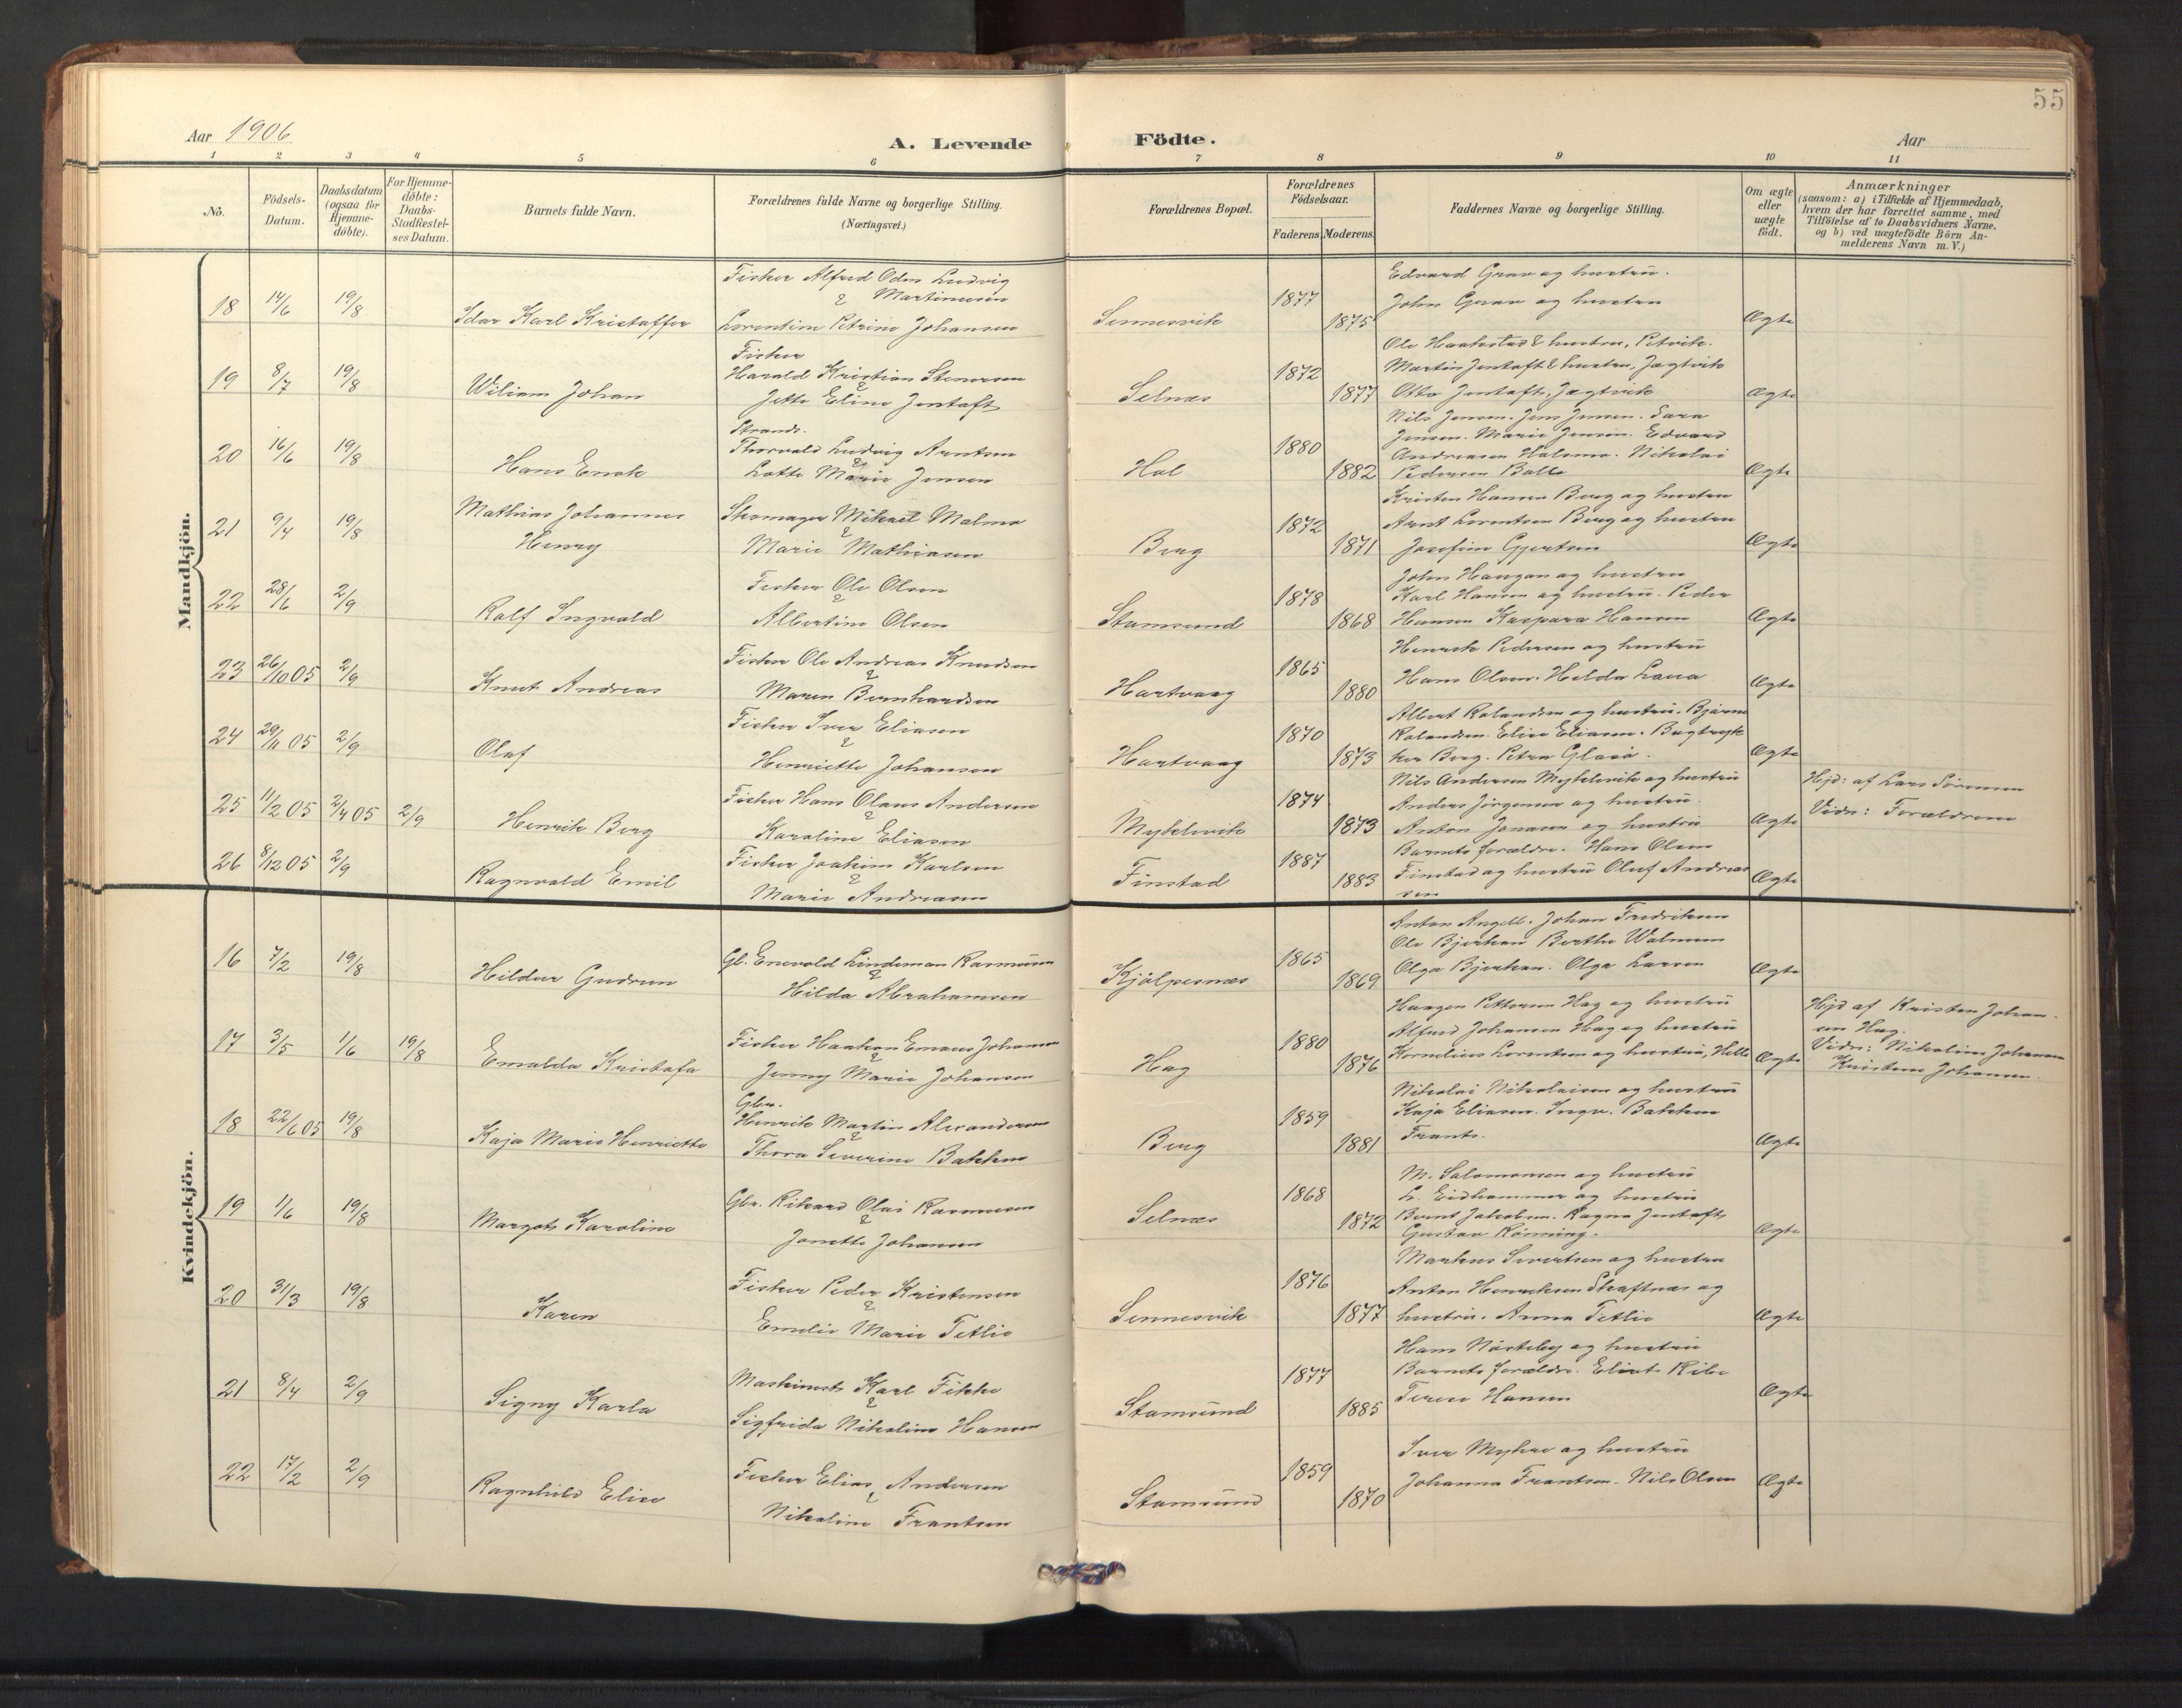 55
Aar 1906
A. Levende
Födte.
Aar
1 2 3 4 5 6 7 8 9 10 11
No.
Födsels-
Datum.
Daabsdatum
(ogsaa for
Hjemme-
döbte).
For Hjemme-
döbte:
Daabs-
Stadfæstel-
ses Datum.
Barnets fulde Navn.
Forældrenes fulde Navne og borgerlige Stilling.
(Næringsvei.)
Forældrenes Bopæl.
Forældrenes
Födselsaar.
Faderens Moderens
Faddernes Navne og borgerlige Stilling.
Om ægte
eller
uægte
födt.
Anmærkninger
(saasom: a) i Tilfælde af Hjemmedaab,
hvem der har forrettet samme, med
Tilföielse af to Daabsvidners Navne.
og b) ved uægtefödte Börn An-
melderens Navn m. V.)
Mandkjön.
18 14/6 19/8
Idar Karl Kristoffer
Fisker Alfred Odin Ludvig
& Martinusen
Lorentine Petrine Johansen
Sennesvik
1877
1875
Edvard Grav og hustru.
John Grav og hustru
Ægte
19 8/7 19/8
Wiliam Johan
Fisker
Harald Kristian Stenersen
&
Jette Eline Jentoft
Selnæs
1872
1877
Ole Haakestad & hustru, Petvik.
Martin Jentoft & hustru, Jagtvik
Otto Jentoft, Jagtvik
Ægte
20 16/6 19/8
Hans Enok
Strands.
Thorvald Ludvig Arntsen
&
Lotte Marie Jensen
Hol
1880
1882
Nils Jensen. Jens Jensen. Sara
Jensen. Marie Jensen. Edvard
Andreasen Holsmo. Nikolai
Pedersen Balle
Ægte
21 9/4 19/8
Mathias Johannes
Henry
Skomager Mikael Malmo
&
Marie Mathiasen
Berg
1872
1871
Kristen Hansen Berg og hustru
Arnt Lorentsen Berg og hustru
Josefine Gjertsen
Ægte
22 28/6 2/9
Rolf Ingvald
Fisker Ole Olsen
&
Albertine Olsen
Stamsund
1878
1868
John Haugan og hustru
Karl Hansen og hustru. Peder
Hansen Kaspara Hansen
Ægte
23 26/10 05 2/9
Knut Andreas
Fisker Ole Andreas Knudsen
&
Maren Bernhardsen
Hartvaag
1865
1880
Henrik Pedersen og hustru
Hans Olsen. Helda
Ægte
24 29/11 05 2/9
Olaf
Fisker Iver Eliasen
&
Henriette Johansen
Hartvaag
1870
1873
Albert Rolandsen og hustru. Bjarne
Rolandsen Elise Eliasen. Bogtryk
ker Berg. Petra
Ægte
25 11/2 05 2/4 05 2/9
Henrik Berg
Fisker Hans Olaus Andersen
&
Karoline Eliasen
Myklevik
1874
1873
Nils Andersen Myklevik og hustru
Anders Jörgensen og hustru.
Anton Jonasen og hustru
Ægte
Hjd: af Lars Sörensen
Vidn: Forældrene
26 8/12 05 2/9
Ragnvald Emil
Fisker Joakim Karlsen
&
Marie Andreasen
Finstad
1887
1883
Barnets forældre. Hans Olsen
Finstad og hustru Oluf Andreas
sen
Ægte
Kvindekjön.
16 7/2 19/8
Hildur Gudrun
Gb. Enevold Lindeman Rasmusen
&
Hilda Abrahamsen
Kjölpesnæs
1865
1869
Anton Angell. Johan Fredriksen
Ole Bjerkan Berthe Walnum
Olga Bjerkan. Olga Larsen
Ægte
17 3/5 1/6 19/8
Emalda Kristofa
Fisker Haakon Emaus Johansen
&
Jenny Marie Johansen
Hag
1880
1876
Haagen Pettersen Hag og hustru
Alfred Johansen Hag og hustru
Kornelius Lorentsen og hustru, Helle
Ægte
Hjd af Kristen Johan-
sen Hag.
Vidn: Nikoline Johansen
Kristine Johansen.
18 22/6 05 19/8
Kaja Marie Henriette
Gbr.
Henrik Martin Alexandersen
&
Thora Severine Bakken
Berg
1859
1881
Nikolai Nikolaisen og hustru
Kaja Eliasen. Ingv. Bakken
Frants.
Ægte
19 1/6 19/8
Margot Karoline
Gbr. Rikard Olai Rasmusen
&
Jonette Johansen
Selnæs
1868
1872
M. Salomonsen og hustru
L. Eidhammer og hustru
Bernt Jakobsen. Ragna Jentoft
Gustav Rönning.
Ægte
20 31/3 19/8
Karen
Fisker Peder Kristensen
&
Emelie Marie Tetlie
Sennesvik
1876
1877
Markus Sivertsen og hustru
Anton Henriksen Skaftnæs og
hustru. Anna Tetlie
Ægte
21 8/4 2/9
Signy Karla
Maskinist Karl Fikke
&
Sigfrida Nikoline Hansen
Stamsund
1877
1885
Hans Nösteby og hustru
Barnets forældre. Elert Ribe
Terese Hansen
Ægte
22 17/2 2/9
Ragnhild Elise
Fisker Elias Andersen
&
Nikoline Frantsen
Stamsund
1859
1870
Iver Myhre og hustru
Johanna Frantsen. Nils Olsen
Ægte